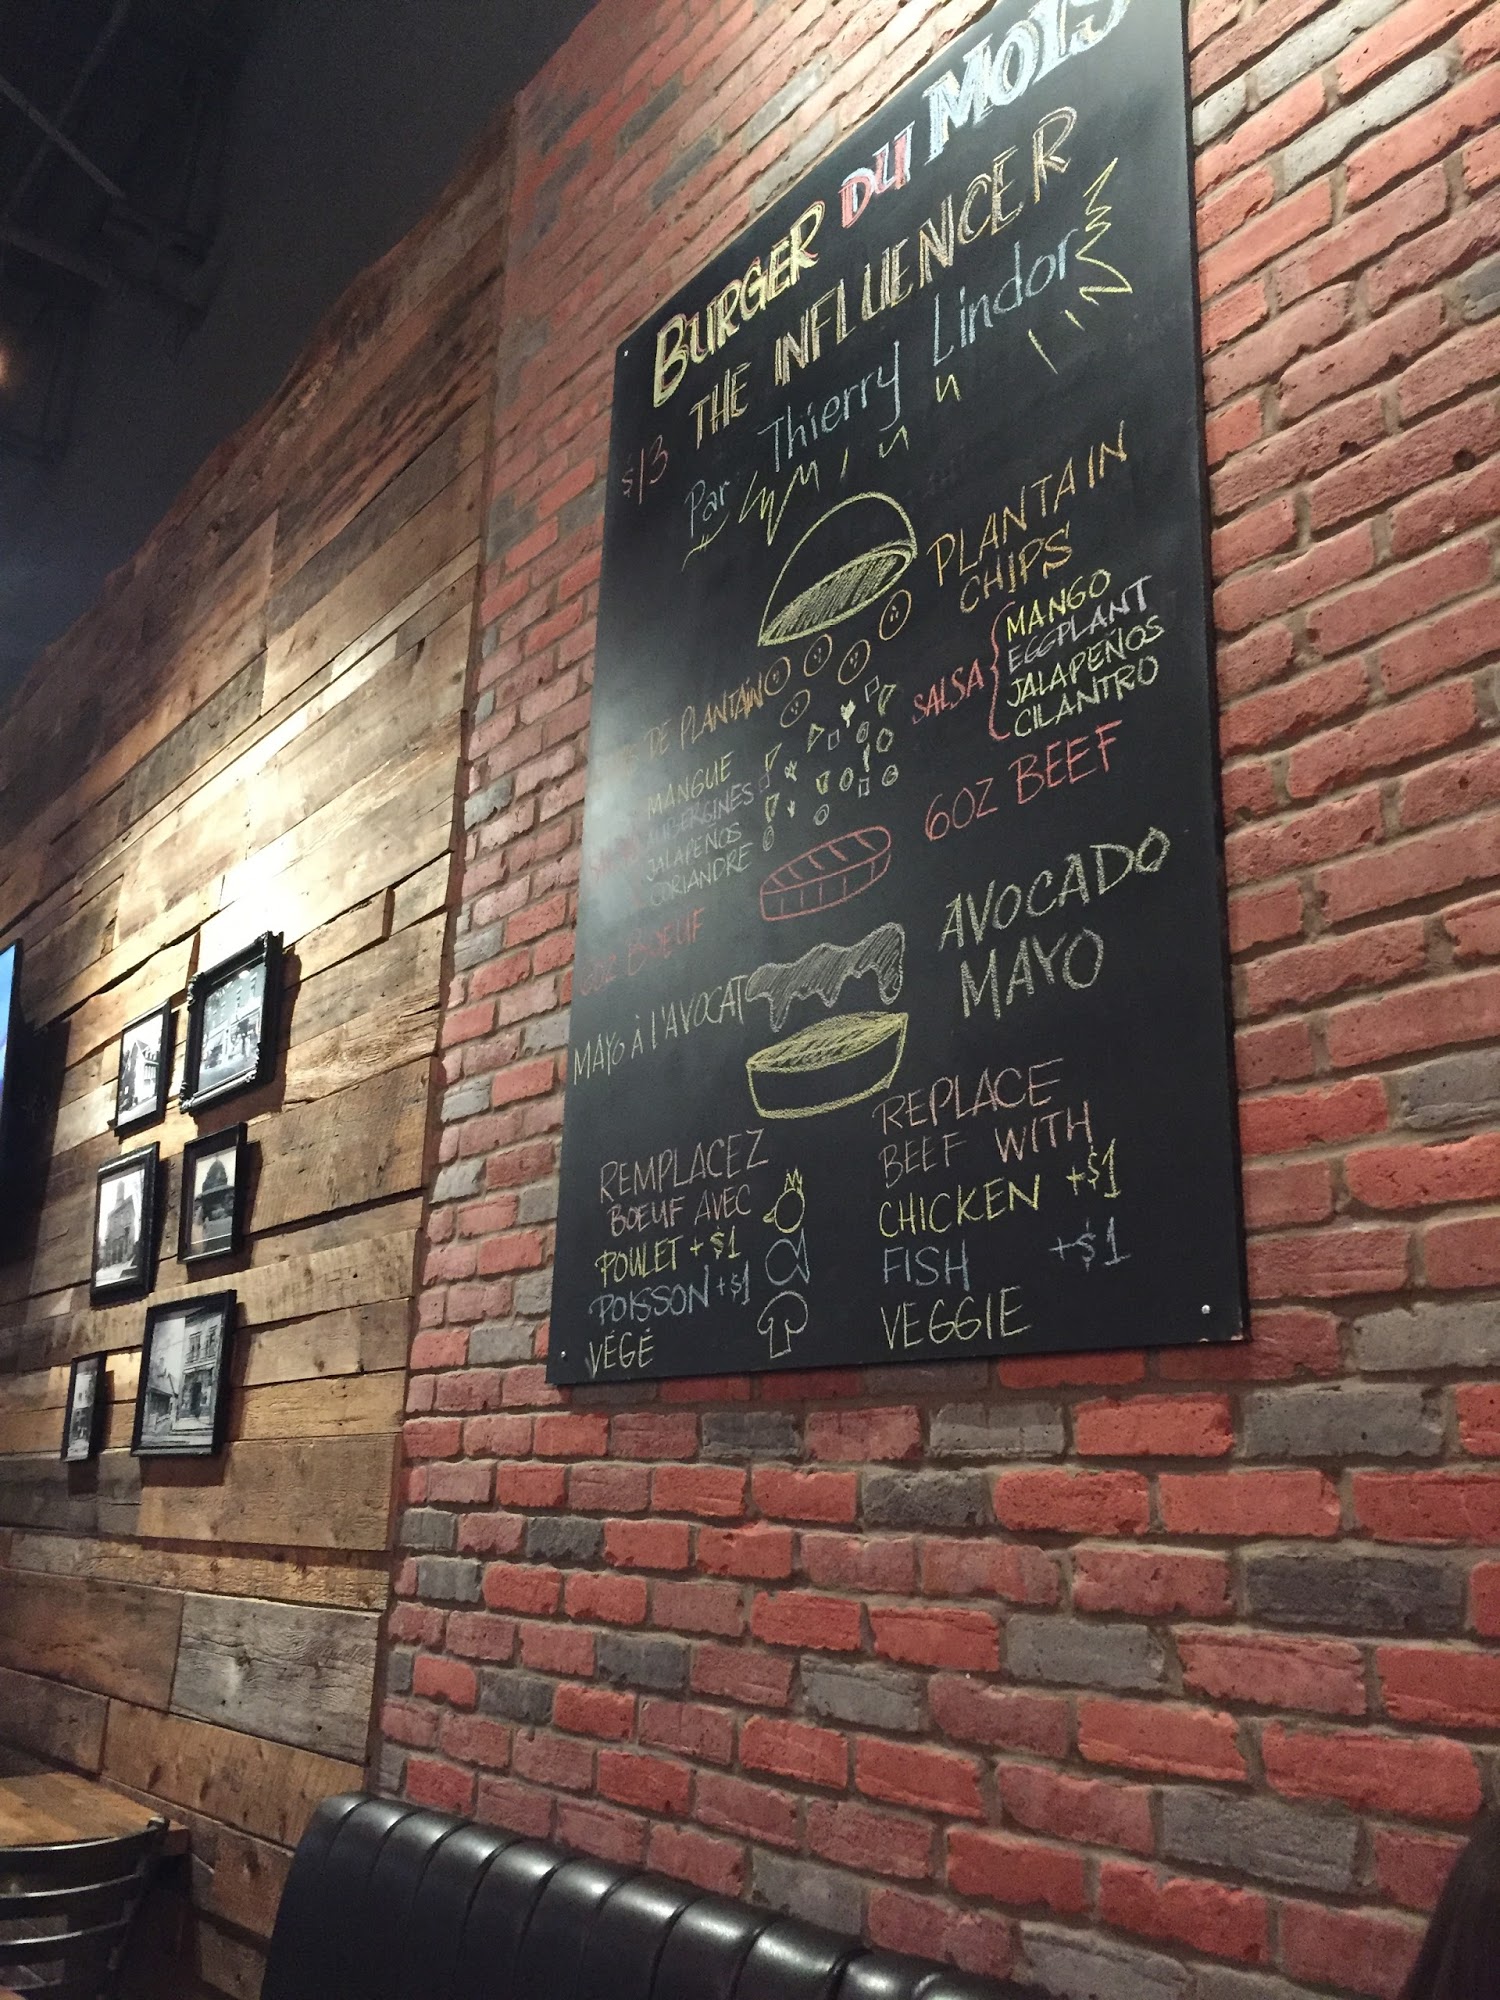 BURGER DU MOIS
THE INFLUENCER
$13
Par Thierry Lindor
PLANTAIN
CHIPS
SALSA
MANGO
EGGPLANT
JALAPEÑOS
CILANTRO
6OZ BEEF
AVOCADO
MAYO
DE PLANTAIN
MANGUE
AUBERGINES
JALAPEÑOS
CORIANDRE
6OZ BOEUF
MAYO À L'AVOCAT
REMPLACEZ
BOEUF AVEC
POULET +$1
POISSON +$1
VÉGÉ
REPLACE
BEEF WITH
CHICKEN +$1
FISH +$1
VEGGIE